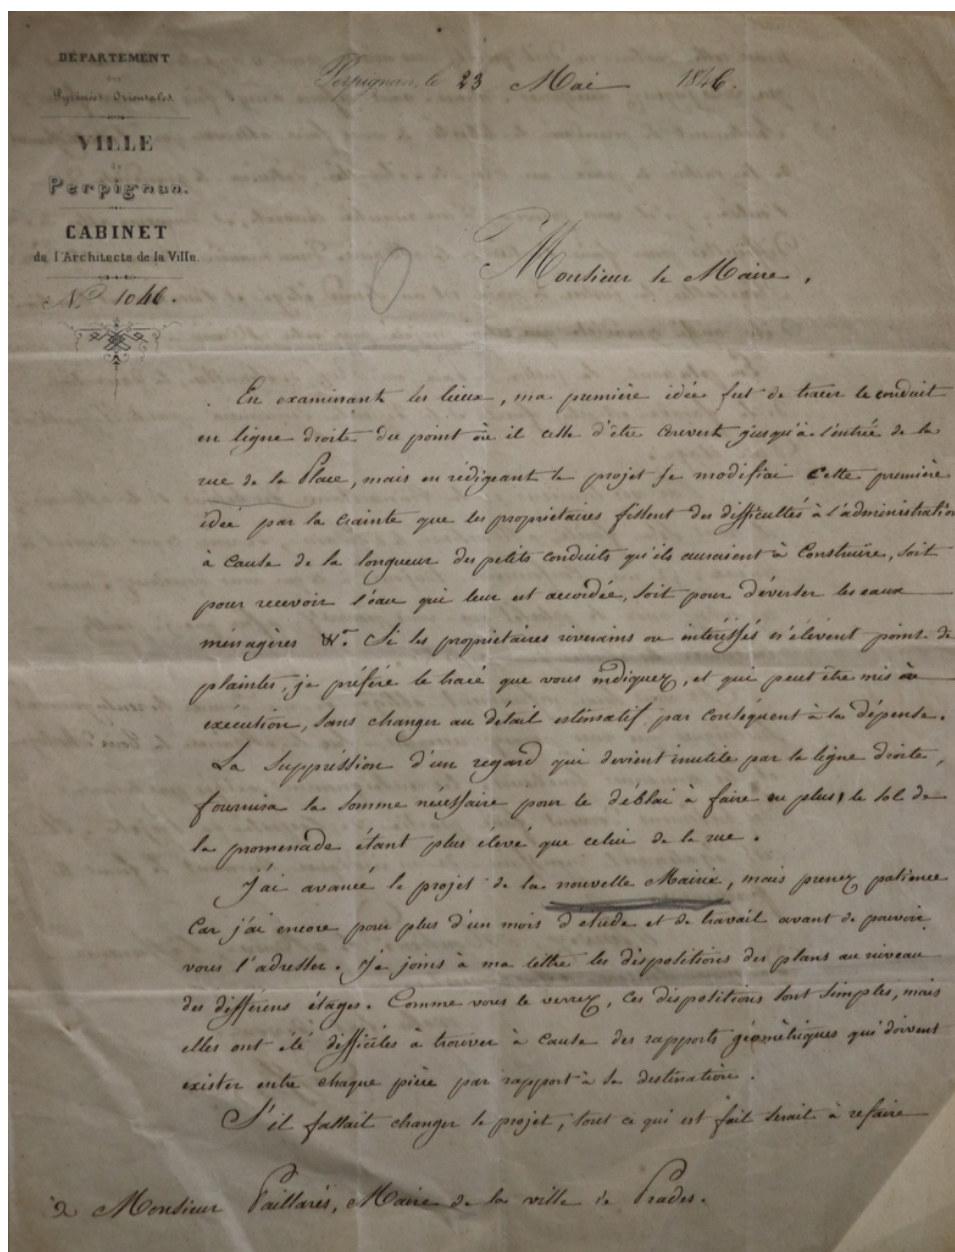 DÉPARTEMENT
des
Pyrénées-Orientales.
VILLE
de
Perpignan.
CABINET
de l'Architecte de la Ville.
N.º 1046.
Perpignan, le 23 Mai 1846.
Monsieur le Maire,
En examinant les lieux, ma première idée fut de tracer le conduit
en ligne droite du point où il cesse d'être couvert jusqu'à l'entrée de la
rue de la Place, mais en rédigeant le projet je modifiai cette première
idée par la crainte que les propriétaires fissent des difficultés à l'administration
à cause de la longueur des petits conduits qu'ils auraient à construire, soit
pour recevoir l'eau qui leur est accordée, soit pour déverser les eaux
ménagères &ª. Si les propriétaires riverains ou intéréssés n'élèvent point de
plaintes, je préfére le tracé que vous indiquez, et qui peut être mis à
exécution, sans changer au détail estimatif par conséquent à la dépense.
La suppréssion d'un regard qui devient inutile par la ligne droite,
fournira la somme nécessaire pour le déblai à faire en plus, le sol de
la promenade étant plus élevé que celui de la rue.
J'ai avancé le projet de la nouvelle Mairie, mais prenez patience
car j'ai encore pour plus d'un mois d'etude et de travail avant de pouvoir
vous l'adresser. Je joins à ma lettre les dispositions des plans au niveau
des différens étages. Comme vous le verrez, ces dispositions sont simples, mais
elles ont été difficiles à trouver à cause des rapports géomètriques qui doivent
exister entre chaque pièce par rapport à sa destination.
S'il fallait changer le projet, tout ce qui est fait serait à refaire
à Monsieur Paillarès, Maire de la ville de Prades.